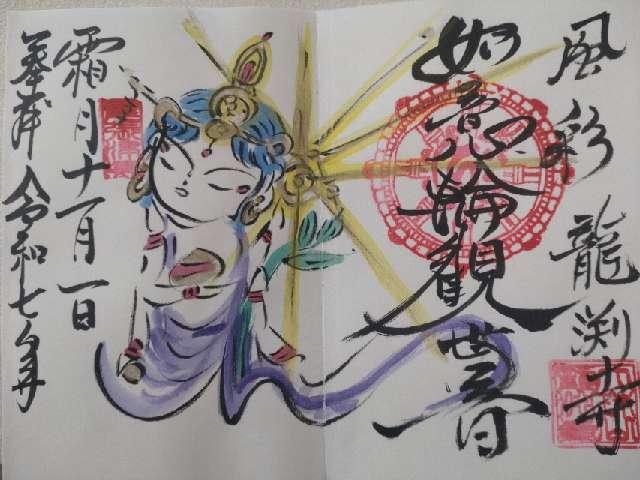 風彩 龍渕寺
如意輪観世音
霜月十一月一日
奉拝 令和七年